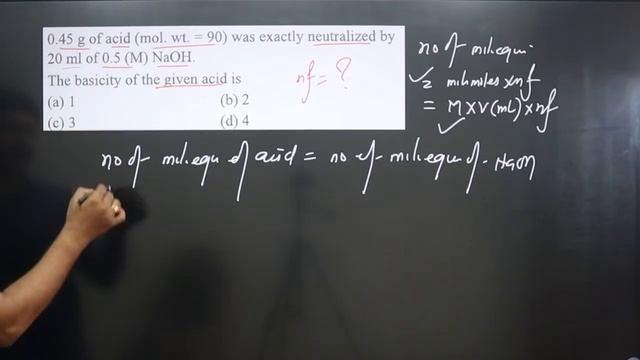 0.45 g of acid (mol. wt. = 90) was exactly neutralized by
20 ml of 0.5 (M) NaOH.
The basicity of the given acid is
(a) 1 (b) 2
(c) 3 (d) 4
nf = ?
no of mili equ.
= milimoles × nf
= M × V (mL) × nf
no of mili.equ of acid = no of mili.equ of NaOH